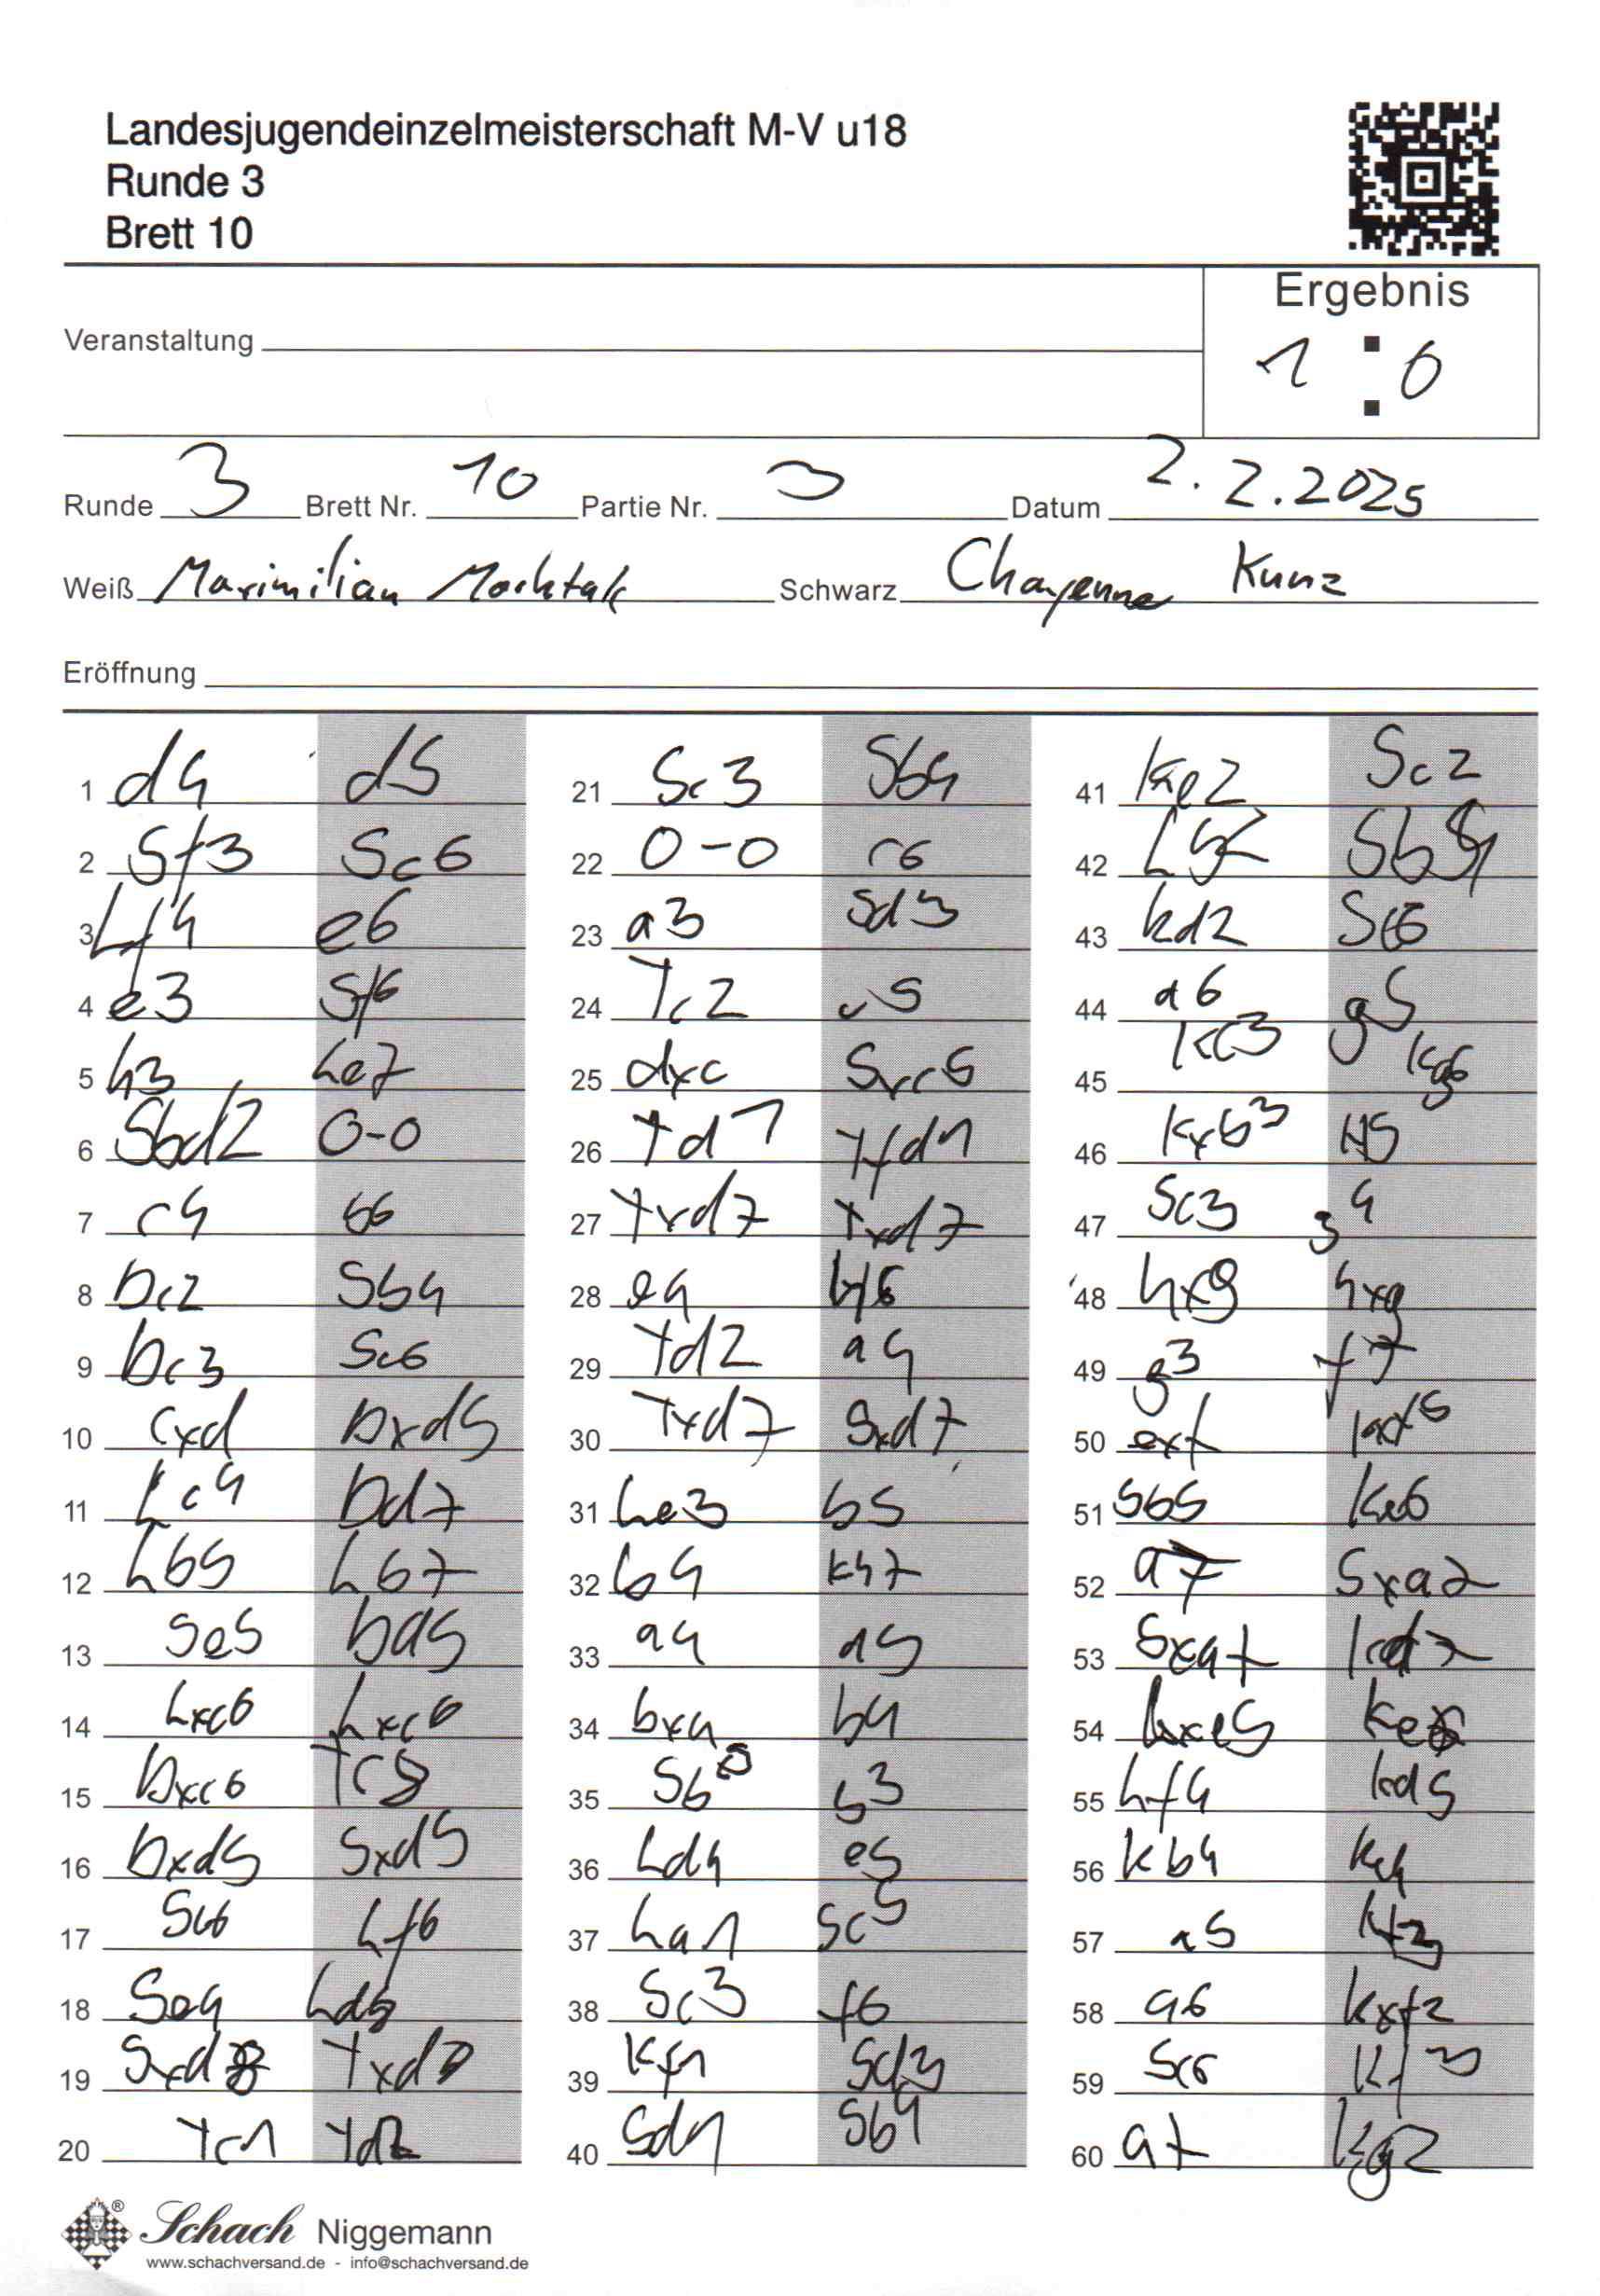 Landesjugendeinzelmeisterschaft M-V u18
Runde 3
Brett 10
Ergebnis
Veranstaltung
1 : 0
Runde 3 Brett Nr. 10 Partie Nr. 3 Datum 2.2.2025
Weiß Maximilian Schwarz Chayenne Kunz
Eröffnung
1 d4 d5
2 Sf3 Sc6
3 Lf4 e6
4 e3 Sf6
5 h3 Le7
6 Sbd2 0-0
7 c4 b6
8 Dc2 Sb4
9 Dc3 Sc6
10 cxd Dxd5
11 Lc4 Dd7
12 Lb5 Lb7
13 Se5 Dd5
14 Lxc6 Lxc6
15 Dxc6 Tc8
16 Dxd5 Sxd5
17 Sc6 Lf6
18 Se4 Ld8
19 Sxd8 Txd8
20 Tc1 Td7
21 Sc3 Sb4
22 0-0 c6
23 a3 Sd3
24 Tc2 c5
25 dxc Sxc5
26 Td1 Tfd8
27 Txd7 Txd7
28 e4 h6
29 Td2 a4
30 Txd7 Sxd7
31 Le3 b5
32 b4 Kh7
33 a4 a5
34 bxa b4
35 Sb5 b3
36 Ld4 e5
37 La1 Sc5
38 Sc3 f6
39 Kf1 Sd3
40 Sd1 Sb4
41 Ke2 Sc2
42 Lb2 Sb4
43 Kd2 Sc6
44 a6 g5
45 Kc3 Kg6
46 Kxb3 h5
47 Sc3 g4
48 hxg hxg
49 g3 f5
50 exf Kxf5
51 Sb5 Ke6
52 a7 Sxa7
53 Sxa7 Kd7
54 Lxe5 Ke6
55 Lf4 Kd5
56 Kb4 Ke4
57 a5 Kf3
58 a6 Kxf2
59 Sc6 Kf3
60 a7 Kg2
®
Schach Niggemann
www.schachversand.de - info@schachversand.de